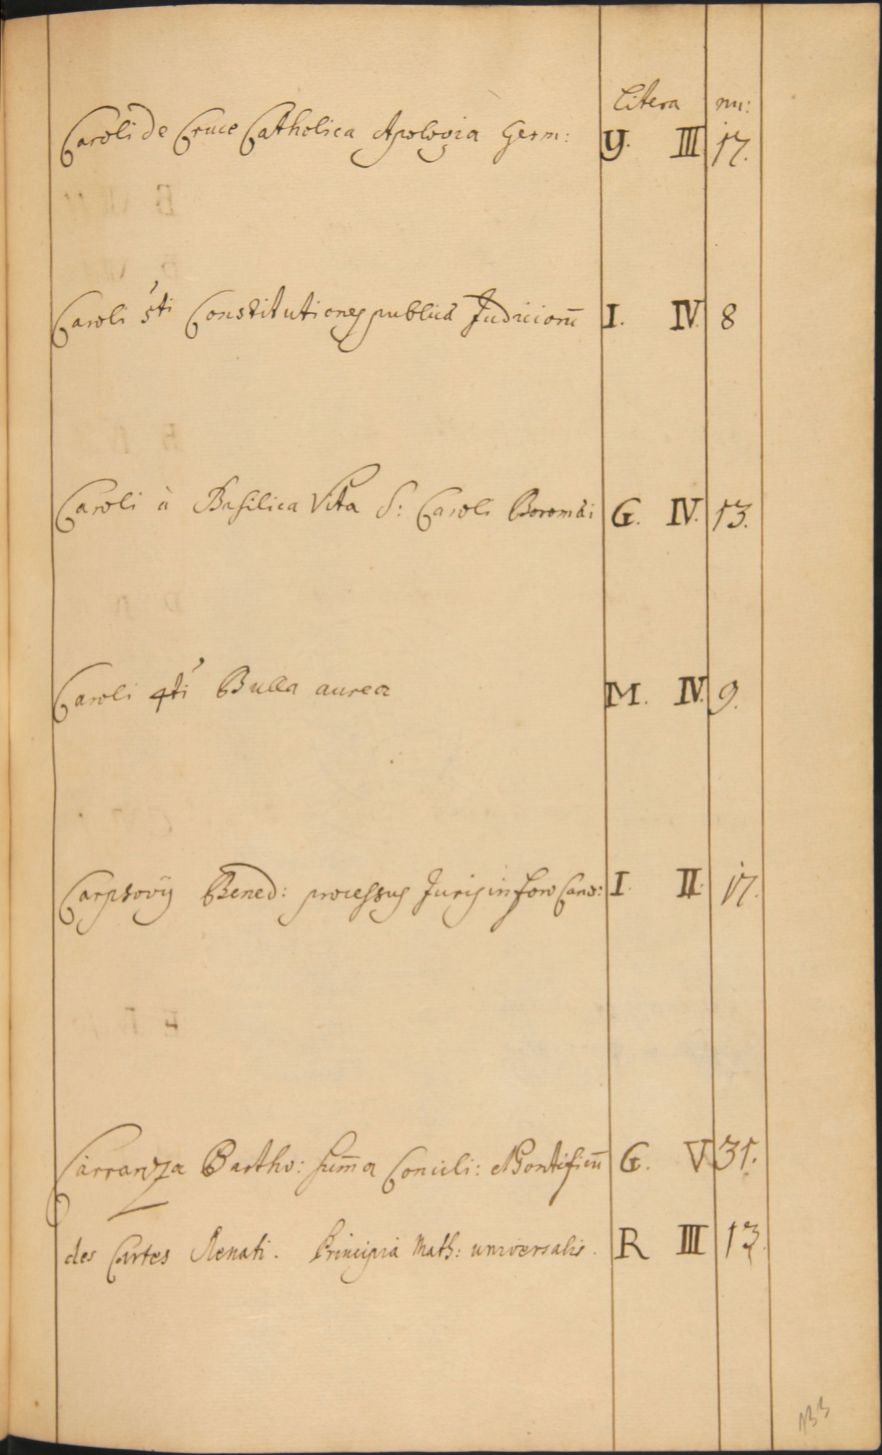 Litera nu:
Caroli de Cruce Catholica Apologia Germ: Y. III 17.
Caroli 5ti Constitutiones publicà Judiciorū I. IV. 8
Caroli à Basilica Vita S: Caroli Boromæi G. IV. 13.
Caroli 4ti Bulla aurea M. IV. 9.
Carpsovÿ Bened: processus Juris in foro Saxo: I. II. 17.
Carranza Bartho: sum̄a Concili: & Pontificū G. V 31.
des Cartes Renati. Principia Math: universalis. R III 13.
133